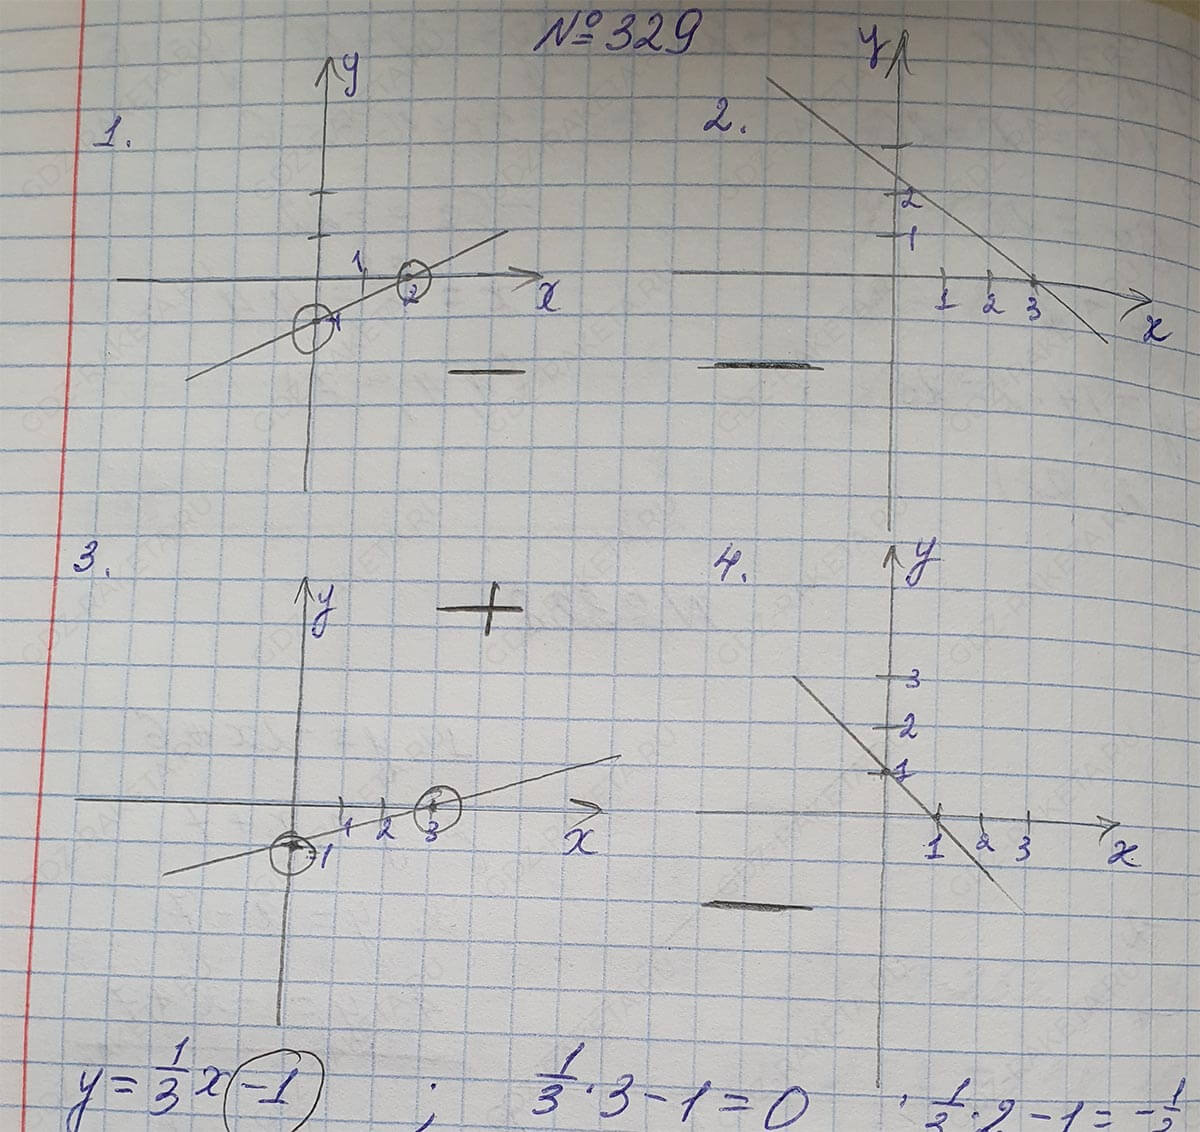 № 329
1.
y
1
2
x
-1
2.
y
2
1
1 2 3
x
3.
y
+
1 2 3
x
-1
4.
y
3
2
1
1 2 3
x
y = 1/3 x - 1 ; 1/3 · 3 - 1 = 0 ; 1/3 · 2 - 1 = - 1/3
GDZ-RAKETA.RU